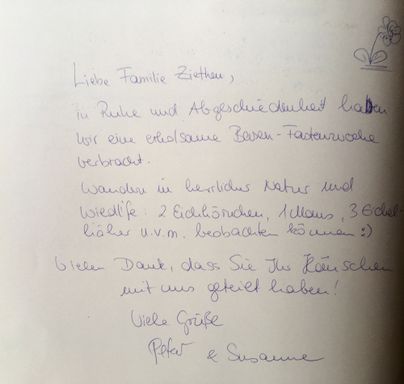 Liebe Familie Ziethen,
in Ruhe und Abgeschiedenheit haben
wir eine erholsame Basen-Fastenwoche
verbracht.
Wandern in herrlicher Natur und
Wiedlife: 2 Eichhörnchen, 1 Maus, 3 Eichel-
häher u.v.m. beobachten können :)
Vielen Dank, dass Sie Ihr Häuschen
mit uns geteilt haben!
Viele Grüße
Peter & Susanne